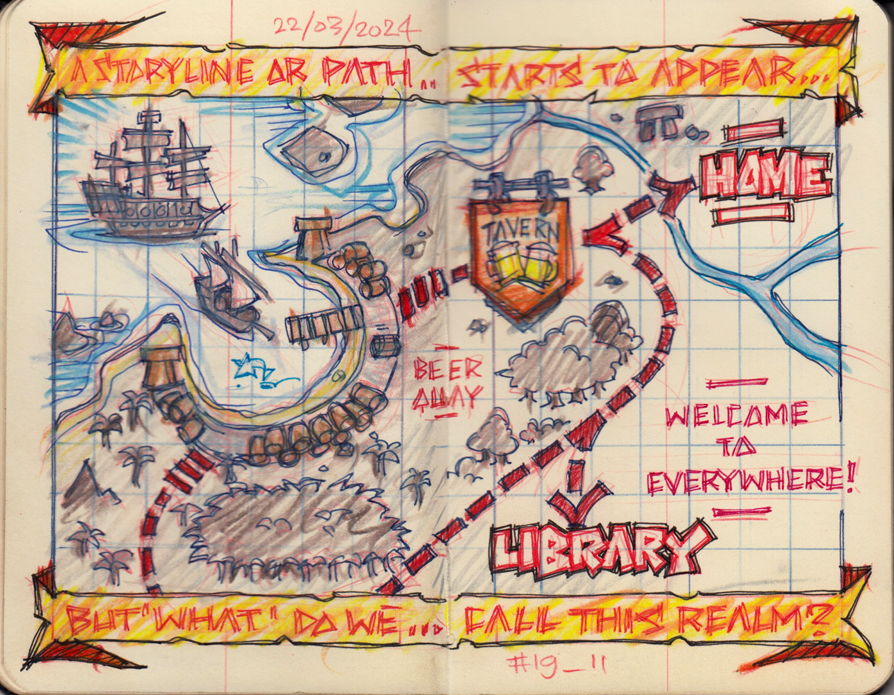 22/03/2024
A STORYLINE OR PATH.. STARTS TO APPEAR...
HOME
TAVERN
BEER
QUAY
WELCOME
TO
EVERYWHERE!
LIBRARY
BUT "WHAT" DO WE... CALL THIS REALM?
#19_11